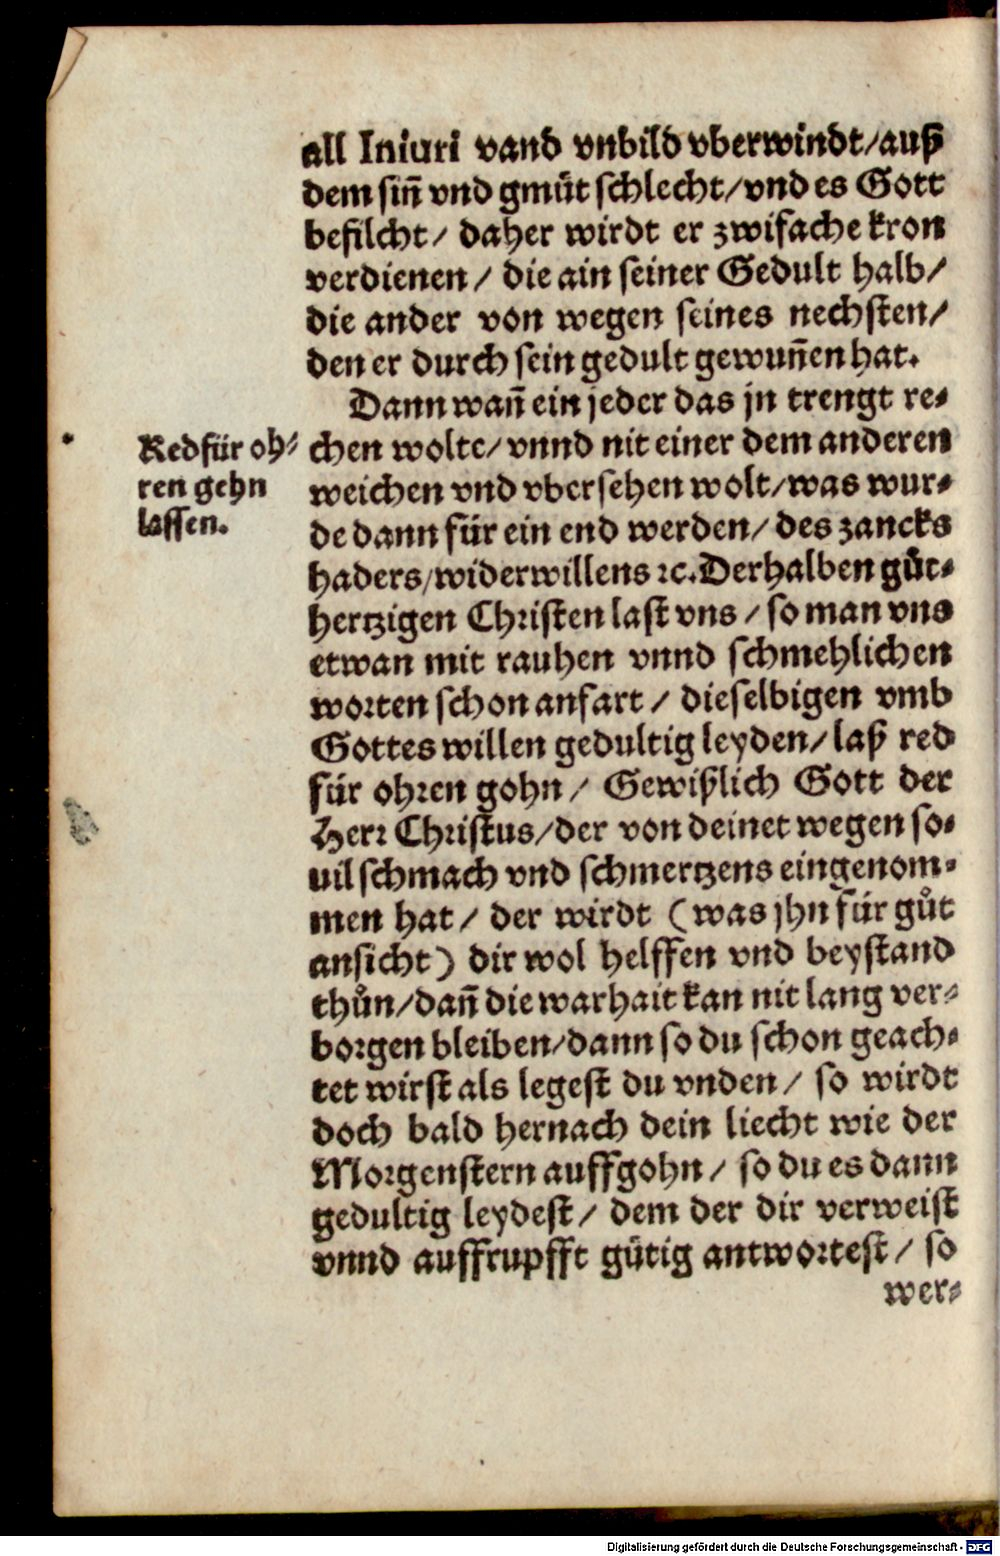 all Iniuri vand vnbild vberwindt/auß
dem siñ vnd gmüt schlecht/vnd es Gott
befilcht/ daher wirdt er zwifache kron
verdienen/ die ain seiner Gedult halb/
die ander von wegen seines nechsten/
den er durch sein gedult gewuñen hat.
Dann wañ ein jeder das jn trengt re-
Red für oh-
ren gehn
lassen.
chen wolte/vnnd nit einer dem anderen
weichen vnd vbersehen wolt/was wur-
de dann für ein end werden/ des zancks
haders/widerwillens ꝛc. Derhalben gůt-
hertzigen Christen last vns/so man vns
etwan mit rauhen vnnd schmehlichen
worten schon anfart/ dieselbigen vmb
Gottes willen gedultig leyden/laß red
für ohren gohn/ Gewißlich Gott der
Herr Christus/der von deinet wegen so-
uil schmach vnd schmertzens eingenom-
men hat/ der wirdt (was jhn für gůt
ansicht) dir wol helffen vnd beystand
thůn/dañ die warhait kan nit lang ver-
borgen bleiben/dann so du schon geach-
tet wirst als legest du vnden/ so wirdt
doch bald hernach dein liecht wie der
Morgenstern auffgohn/ so du es dann
gedultig leydest/ dem der dir verweist
vnnd auffrupfft gütig antwortest/ so
wer-
Digitalisierung gefördert durch die Deutsche Forschungsgemeinschaft - DFG